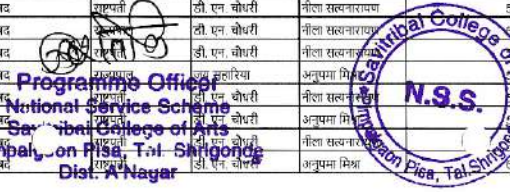 षद राष्ट्रपती डी. एन. चौधरी नीला सत्यनारायण
षद राज्यपाल डी. एन. चौधरी नीला सत्यनारायण
षद डी. एन. चौधरी नीला सत्यनारायण
षद राज्यपाल जय सहारिया अनुपमा मिश्रा
षद राष्ट्रपती डी. एन. चौधरी नीला सत्यनारायण
षद अनुपमा मिश्रा
षद राष्ट्रपती डी. एन. चौधरी नीला सत्यनारायण
षद राष्ट्रपती डी. एन. चौधरी अनुपमा मिश्रा
Programme Officer
National Service Scheme
Savitribai College of Arts
Pisa, Tal. Shrigonda
Dist. A'Nagar
Savitribai College of
N.S.S.
Pimpalgaon Pisa, Tal. Shrigonda